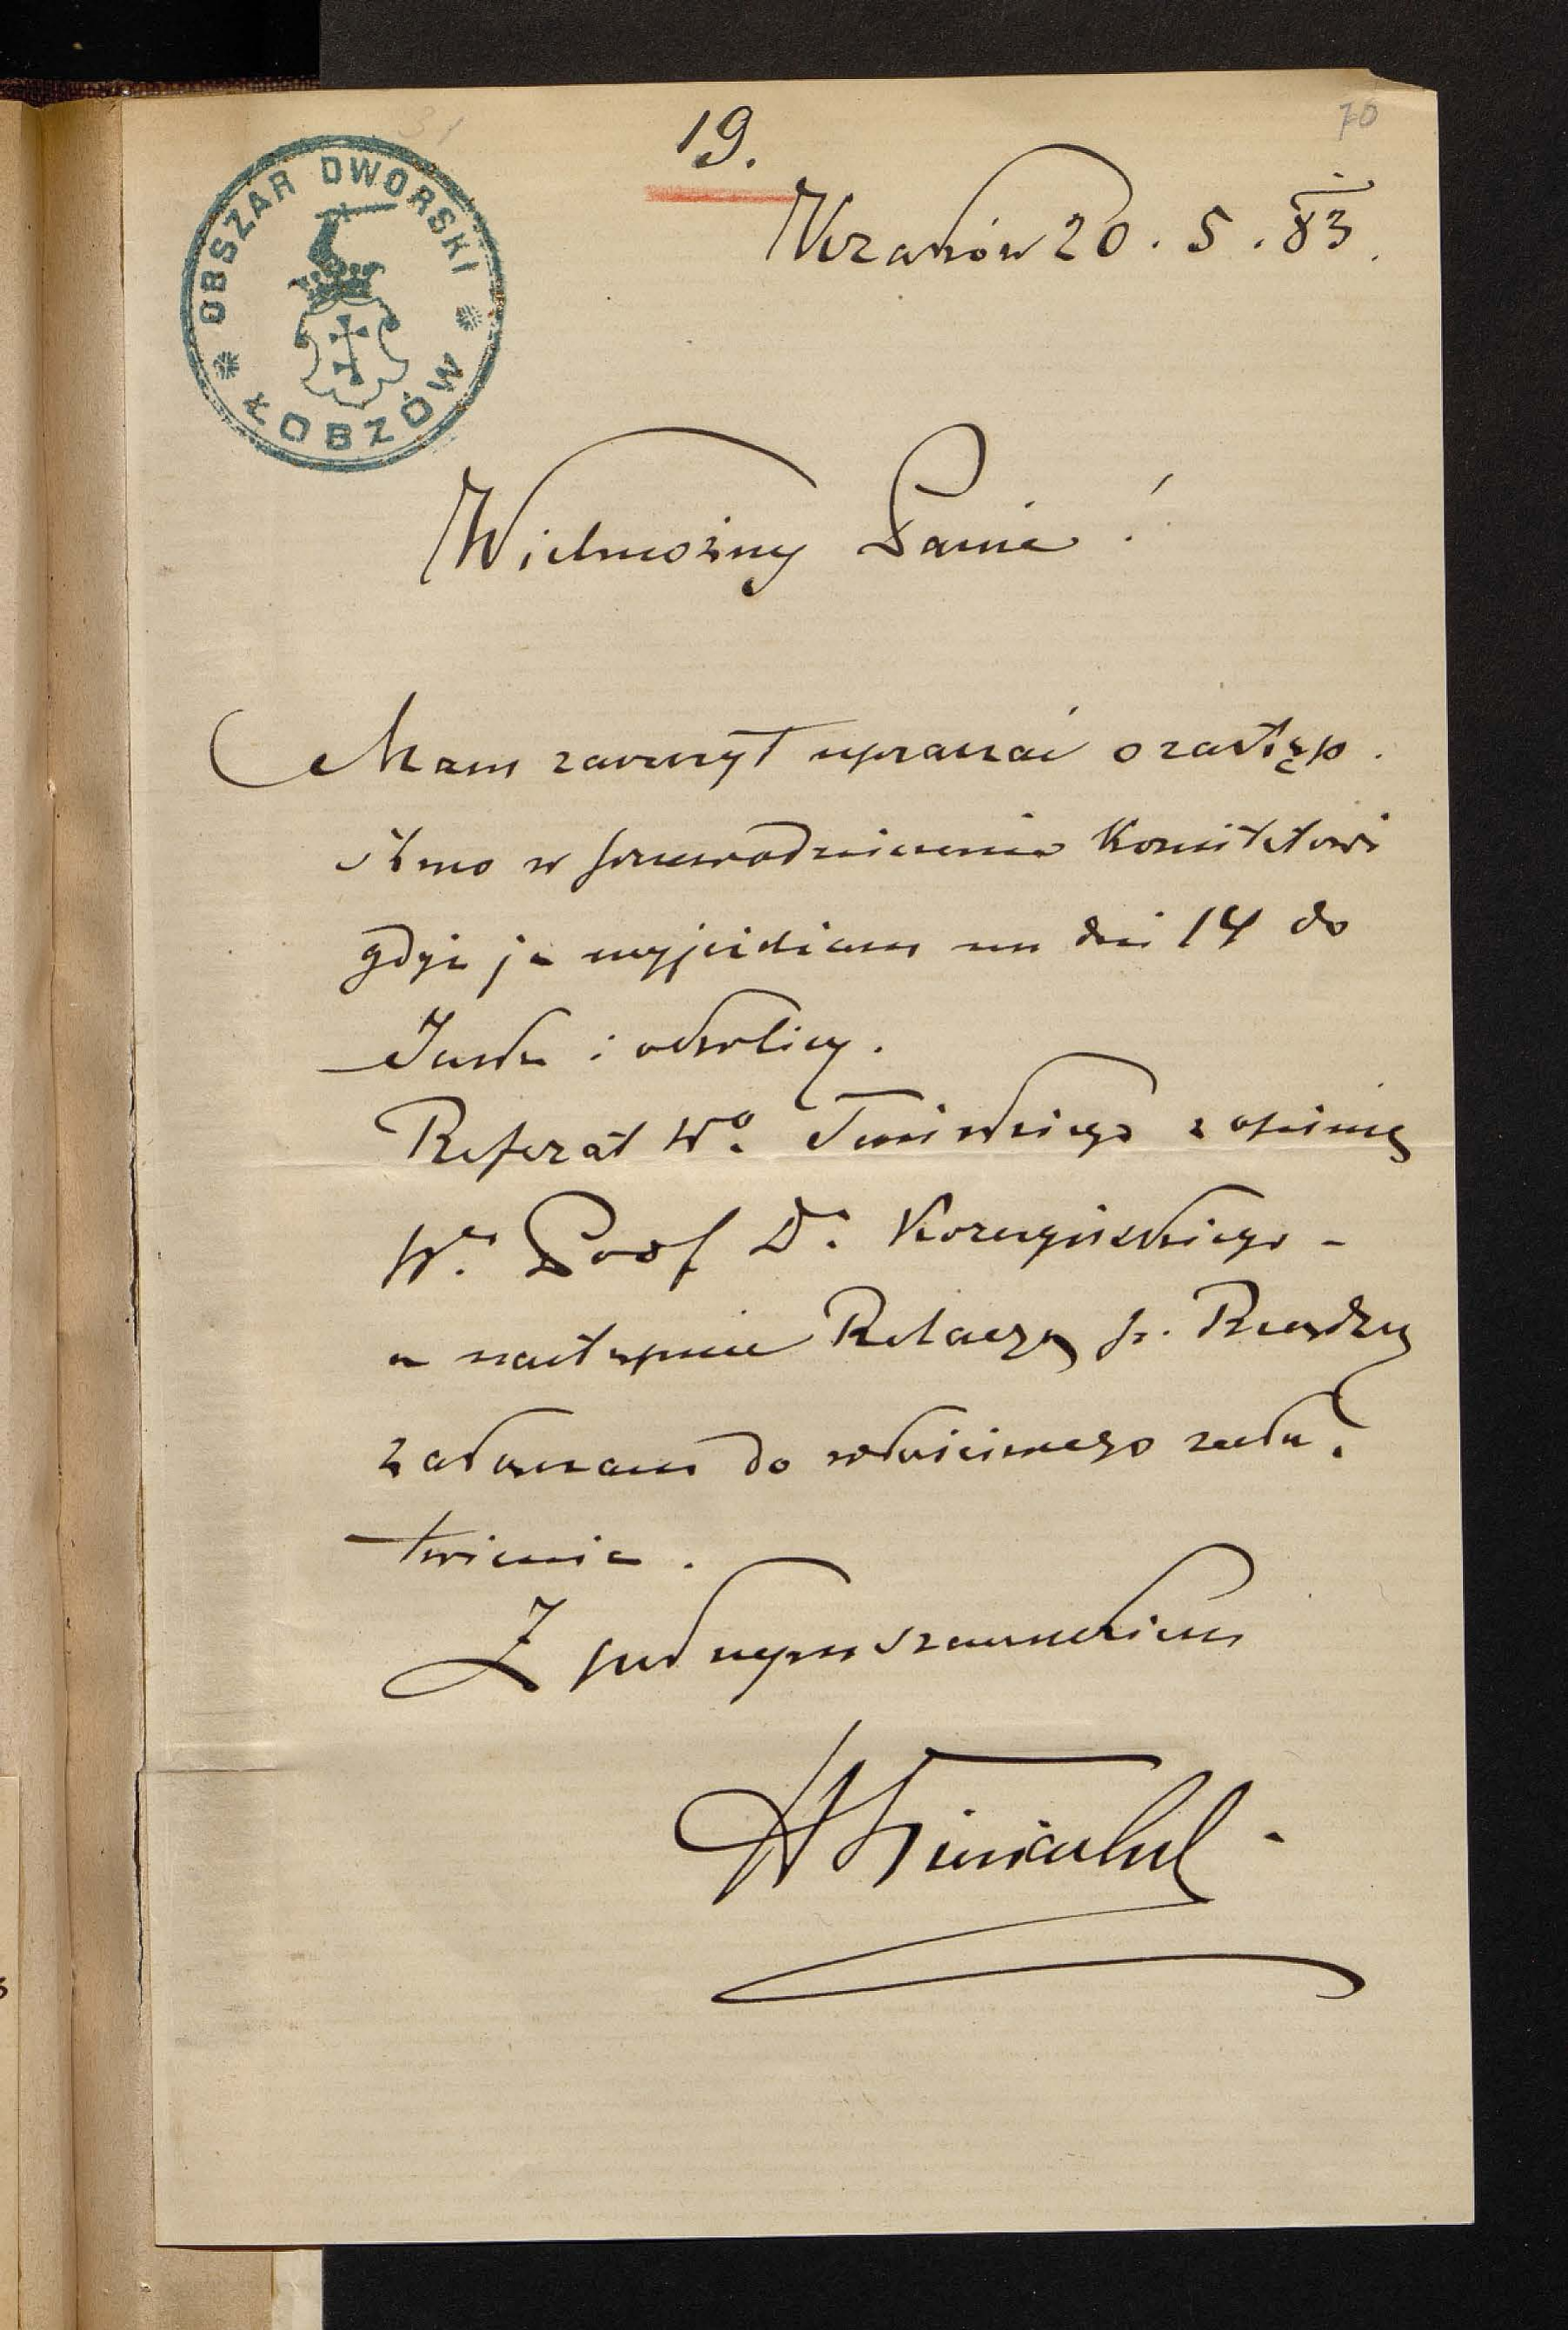 19.
70
OBSZAR DWORSKI
ŁOBZÓW
Kraków 20. 5. 83.
Wielmożny Panie!
Mam zaszczyt upraszać o zastęp.
stwo w przewodniczeniu Komitetowi
gdyż ja wyjeżdżam na dni 14 do
i okolicy.
Referat Wo. z opinią
Wo. Prof Dr. Korczyńskiego -
a następnie Relacyą p.
załączam do właściwego zała.
twienia.
Z poważnym szacunkiem